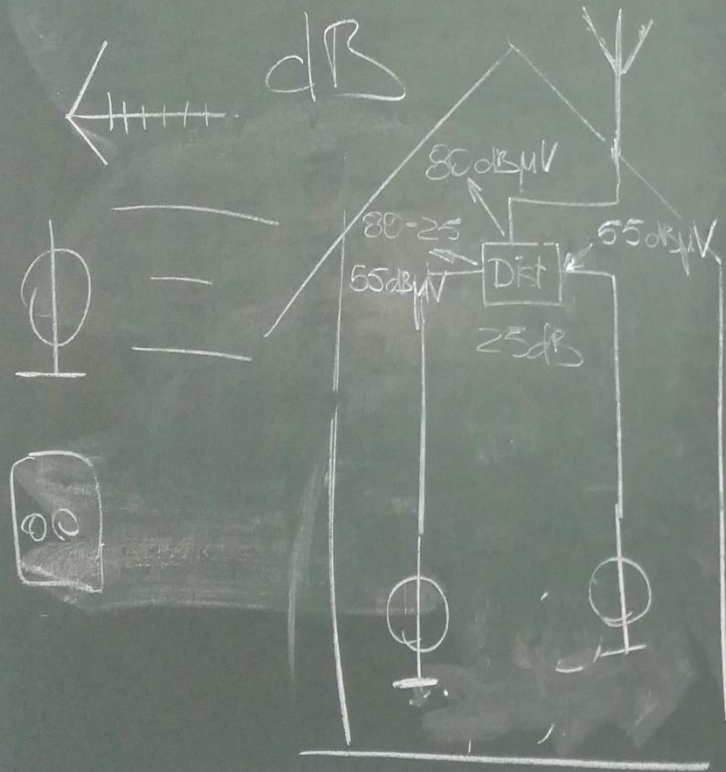 dB
80dBµV
80-25
55dBµV
Dist
55dBµV
25dB